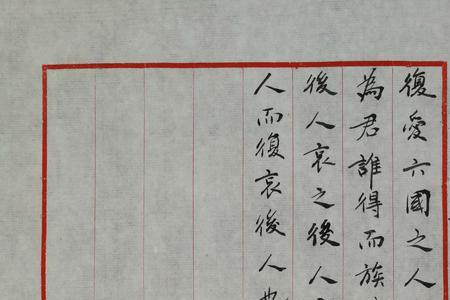 復愛六國之人
為君誰得而族
後人哀之後人
人而復哀後人也